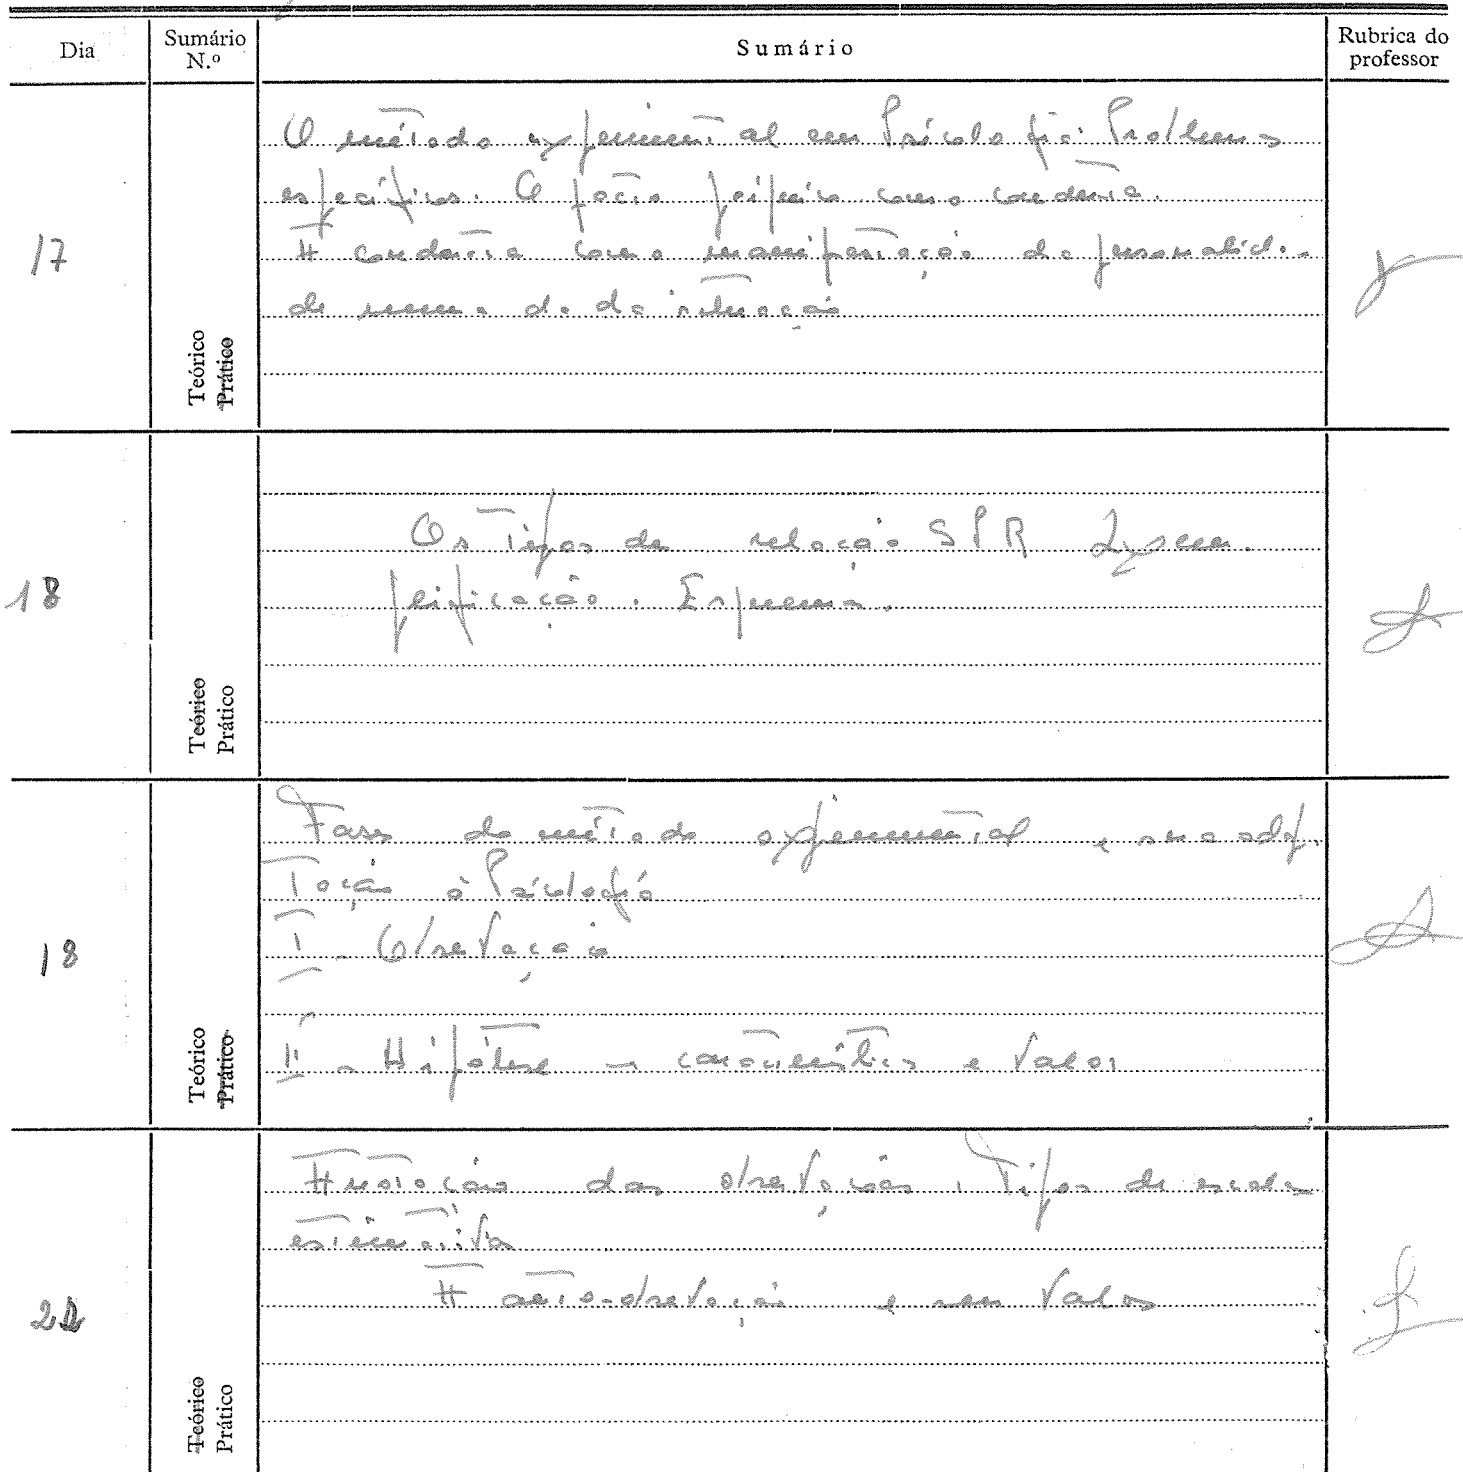 Dia
Sumário N.º
Sumário
Rubrica do professor
17
Teórico
Prático
O método experimental em Psicologia: Problemas
específicos. O facto psíquico como conduta.
A conduta como manifestação da personalida-
de numa dada situação
18
Teórico
Prático
Os tipos de relação SPR Exem-
plificação. Esquema.
18
Teórico
Prático
Fases do método experimental e sua adap-
tação à Psicologia
I - Observação
II - Hipótese - características e valor
Teórico
Prático
Anotação das observações. Tipos de escalas
estimativas
A auto-observação e seu valor